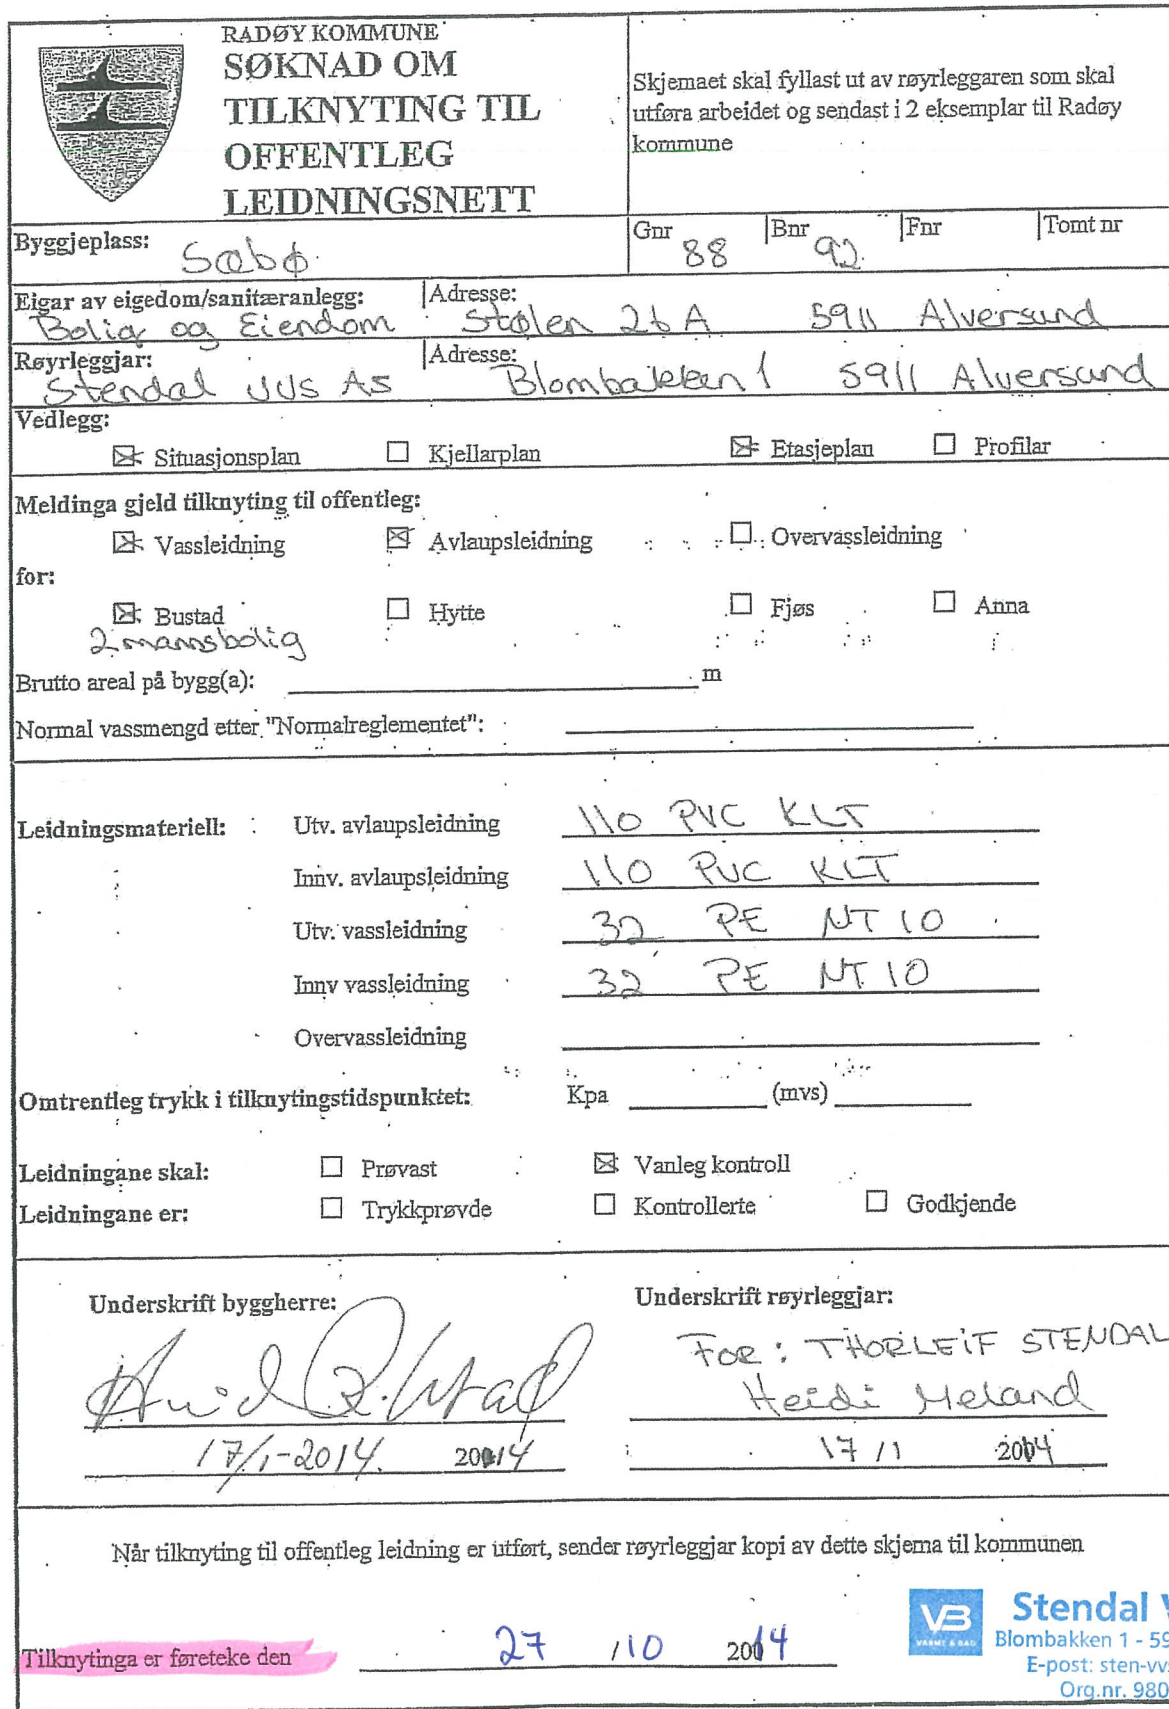 RADØY KOMMUNE
SØKNAD OM
TILKNYTING TIL
OFFENTLEG
LEIDNINGSNETT
Skjemaet skal fyllast ut av røyrleggaren som skal
utføra arbeidet og sendast i 2 eksemplar til Radøy
kommune
Byggjeplass: Sæbø
Gnr 88 Bnr 92 Fnr Tomt nr
Eigar av eigedom/sanitæranlegg: Adresse:
Bolig og Eiendom Stølen 26 A 5911 Alversund
Røyrleggjar: Adresse:
Stendal VVS AS Blombakken 1 5911 Alversund
Vedlegg:
Situasjonsplan Kjellarplan Etasjeplan Profilar
Meldinga gjeld tilknyting til offentleg:
Vassleidning Avlaupsleidning Overvassleidning
for:
Bustad Hytte Fjøs Anna
2 mannsbolig
Brutto areal på bygg(a): m
Normal vassmengd etter "Normalreglementet":
Leidningsmateriell: Utv. avlaupsleidning 110 PVC KLT
Innv. avlaupsleidning 110 PVC KLT
Utv. vassleidning 32 PE NT 10
Innv vassleidning 32 PE NT 10
Overvassleidning
Omtrentleg trykk i tilknytingstidspunktet: Kpa (mvs)
Leidningane skal: Prøvast Vanleg kontroll
Leidningane er: Trykkprøvde Kontrollerte Godkjende
Underskrift byggherre: Underskrift røyrleggjar:
For: THORLEIF STENDAL
Heidi Meland
17/1-2014. 2014 17/1 2014
Når tilknyting til offentleg leidning er utført, sender røyrleggjar kopi av dette skjema til kommunen
Tilknytinga er føreteke den 27 /10 2014
VB
VARME & BAD
Stendal V
Blombakken 1 - 59
E-post: sten-vv
Org.nr. 980